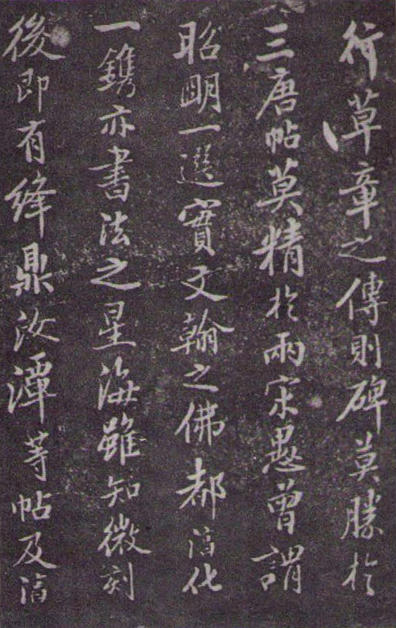 行草章之傳則碑莫勝於
三唐帖莫精於兩宋愚曾謂
昭明一選實文翰之佛都淳化
一鐫亦書法之星海雖知微刻
後即有絳鼎汝潭等帖及淳